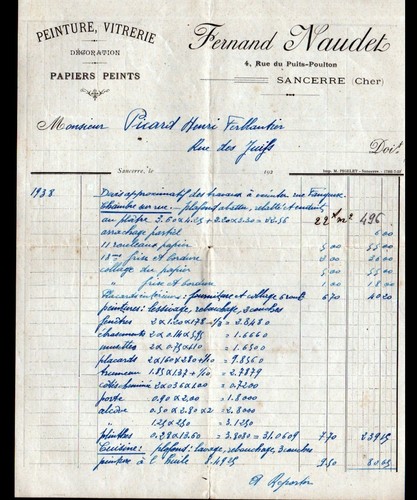 PEINTURE, VITRERIE
DÉCORATION
PAPIERS PEINTS
Fernand Naudet
4, Rue du Puits-Poulton
SANCERRE (Cher)
Monsieur Picard Henri Ferblantier
Rue des Juifs Doit
Sancerre, le 192
1938 Devis approximatif des travaux à exécuter rue
Chambre sur rue: plafond à battre, relatté et enduit
au plâtre 3.60 x 4.25 + 2.20 x 3.30 = 22.56 22 m² 496
arrachage partiel 6.00
11 rouleaux papier 5.00 55.00
frise et bordure 2.00
collage du papier 5.00 55.00
" frise et bordure 1.00 18.00
Placards intérieurs: fourniture et collage 6 roul. 6.70 40.20
peintures: lessivage, rebouchage, 2 couches
fenêtres
chassements = 1.6660
= 1.6500
placards 2 x 1.60 x 2.80 + 1/10 = 9.8560
trumeau 1.85 x 1.37 + 1/10 = 2.7879
côtés cheminée 2 x 0.36 x 1.00 = 0.7200
porte 0.90 x 2.00 = 1.8000
alcôve 0.50 x 2.80 x 2 = 2.8000
" 1.25 x 2.50 = 3.1250
plinthes = 31.0609 7.70 239.15
Cuisine: plafond: lavage, rebouchage, 2 couches
peinture à l'huile 8.4915 9.50 80.65
A Reporter